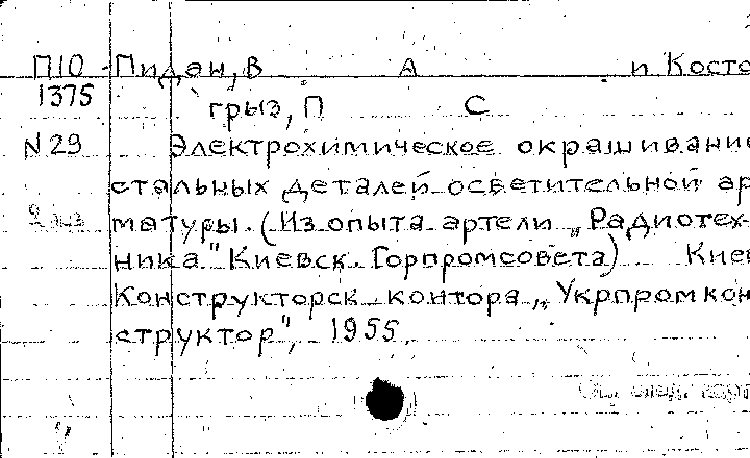 П10 Пидан, В А и Косто
1375 грыз, П С
N 29 Электрохимическое окрашивание
стальных деталей осветительной ар
2 экз матуры. (Из опыта артели „Радиотех-
ника" Киевск. Горпромсовета). Кие
Конструкторск контора „Укрпромкон
структор", 1955
См. след. карт